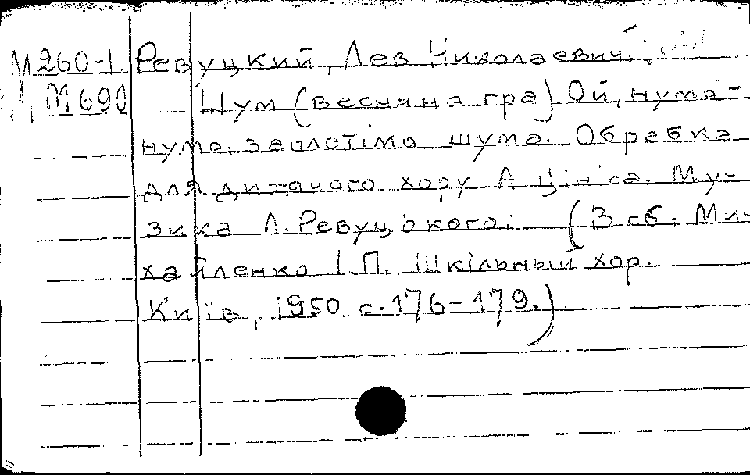 М260-1 Ревуцкий, Лев Николаевич.
М690 Шум (весняна гра) Ой, нума-
нумо, заплетімо шума. Обробка
для дитячого хору А. Цініса. Му-
зика Л. Ревуцького. (В сб. Ми-
хайленко І.П. Шкільный хор.
Київ, 1950 с. 176-179.)